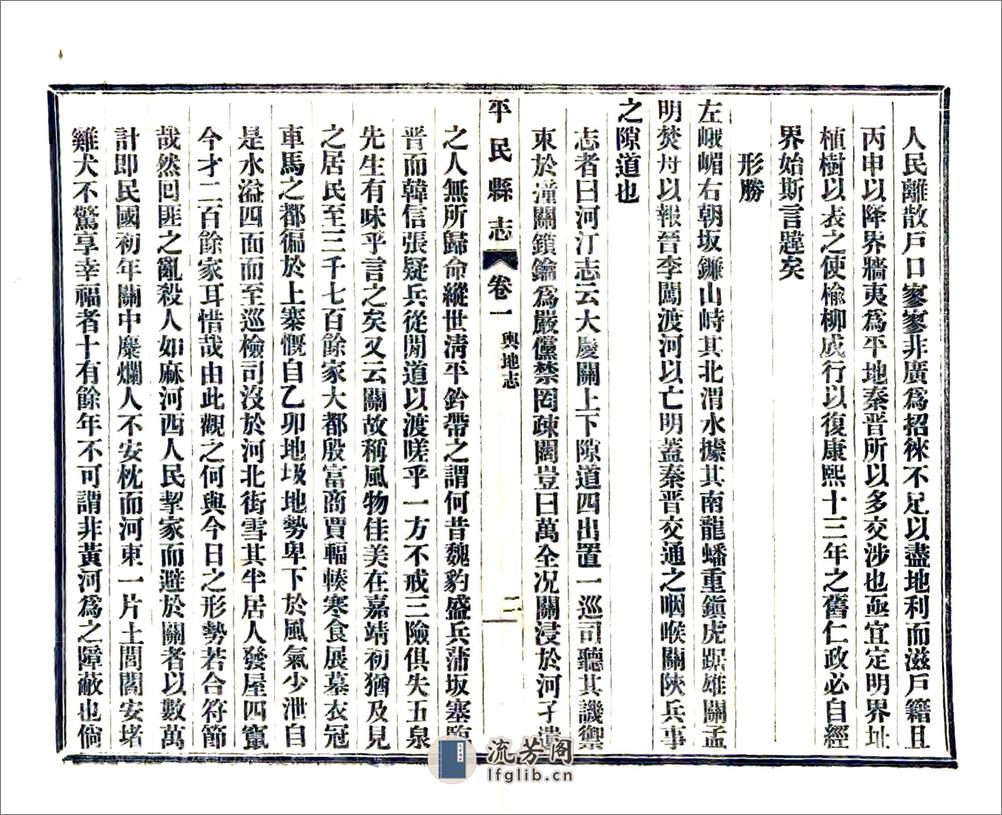 人民離散戶口寥寥非廣爲招徠不足以盡地利而滋戶籍且
丙申以降界牆夷爲平地秦晉所以多交涉也亟宜定明界址
植樹以表之使楡柳成行以復康熙十三年之舊仁政必自經
界始斯言韙矣
形勝
左峨嵋右朝坂鐮山峙其北渭水據其南龍蟠重鎭虎踞雄關孟
明焚舟以報晉李闖渡河以亡明蓋秦晉交通之咽喉關陝兵事
之隙道也
志者曰河汀志云大慶關上下隙道四出置一巡司聽其譏禦
東於潼關鎖鑰爲嚴儻禁罔疎闊豈曰萬全况關浸於河孑遺
平民縣志
卷一
輿地志
二
之人無所歸命縱世淸平鈐帶之謂何昔魏豹盛兵蒲坂塞臨
晉而韓信張疑兵從閒道以渡嗟乎一方不戒三險俱失五泉
先生有味乎言之矣又云關故稱風物佳美在嘉靖初猶及見
之居民至三千七百餘家大都殷富商賈輻輳寒食展墓衣冠
車馬之都徧於上寨慨自乙卯地圾地勢卑下於風氣少泄自
是水溢四面而至巡檢司沒於河北街雪其半居人發屋四竄
今才二百餘家耳惜哉由此觀之何與今日之形勢若合符節
哉然囘匪之亂殺人如麻河西人民挈家而避於關者以數萬
計即民國初年關中糜爛人不安枕而河東一片土閭閻安堵
雞犬不驚享幸福者十有餘年不可謂非黃河爲之障蔽也倘
流芳阁
lfglib.cn